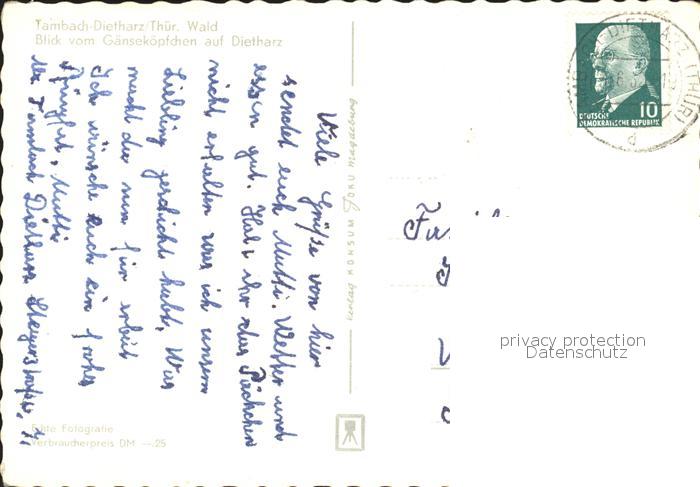 Tambach-Dietharz/Thür. Wald
Blick vom Gänseköpfchen auf Dietharz
Viele Grüße von hier
sendet euch Mutti. Wetter und
essen gut. Habt ihr das Päckchen
nicht erhalten was ich unserm
Liebling geschickt habt, Was
macht der nun für arbeit
Ich wünsche Euch ein frohes
Pfingfest. Mutti
Tambach Dietharz
Echte Fotografie
Verbraucherpreis DM —.25
Verlag KONSUM FOKU Magdeburg
10
DEUTSCHE
DEMOKRATISCHE REPUBLIK
DIETHARZ (THÜR)
d
Fa
privacy protection
Datenschutz